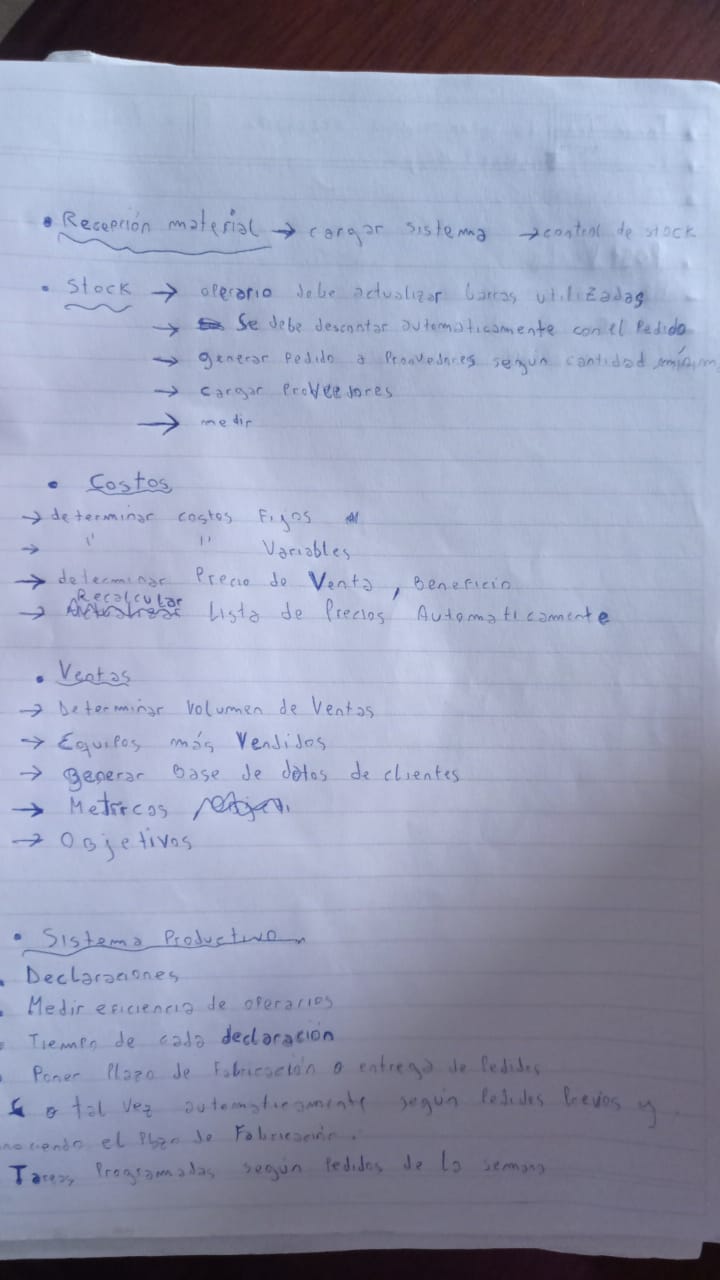 • Recepción material → cargar sistema → control de stock
• Stock → operario debe actualizar barras utilizadas
→ Se debe descontar automaticamente con el Pedido
→ generar Pedido a Proovedores según cantidad mínim
→ cargar Proveedores
→ medir
• Costos
→ determinar costos Fijos
→ " " Variables
→ determinar Precio de Venta, Beneficio
→ Recalcular Lista de Precios Automaticamente
• Ventas
→ Determinar Volumen de Ventas
→ Equipos más Vendidos
→ generar Base de datos de clientes
→ Metricas
→ Objetivos
• Sistema Productivo
. Declaraciones
. Medir eficiencia de operarios
Tiempo de cada declaración
Poner Plazo de Fabricación o entrega de Pedidos
o tal vez automaticamente según Pedidos Previos y
nociendo el Plazo de Fabricación.
Tareas Programadas según Pedidos de la semana